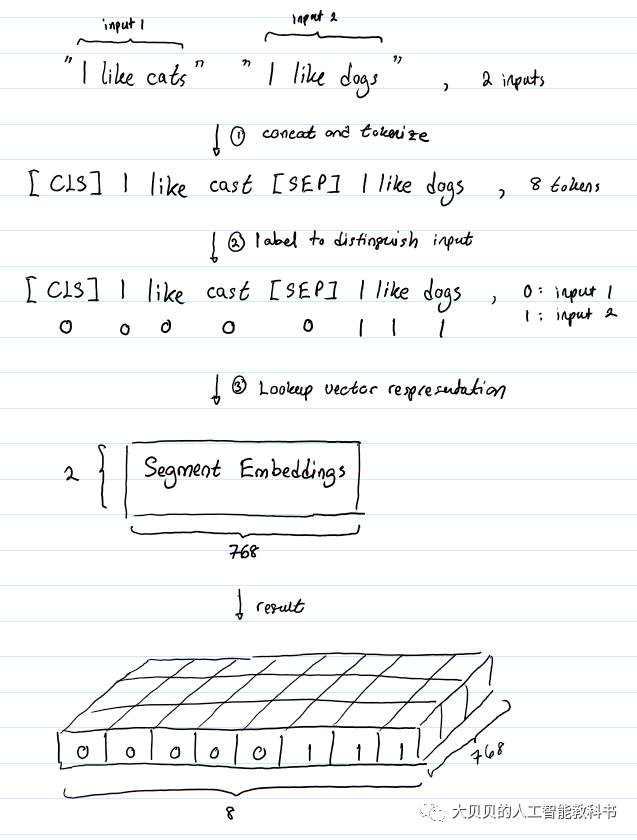 input 1 input 2
"I like cats" "I like dogs" , 2 inputs
① concat and tokenize
[CLS] I like cast [SEP] I like dogs , 8 tokens
② label to distinguish input
[CLS] I like cast [SEP] I like dogs , 0: input 1
0 0 0 0 0 1 1 1 1: input 2
③ Lookup vector respresentation
2 Segment Embeddings
768
result
0 0 0 0 0 1 1 1 768
8
大贝贝的人工智能教科书